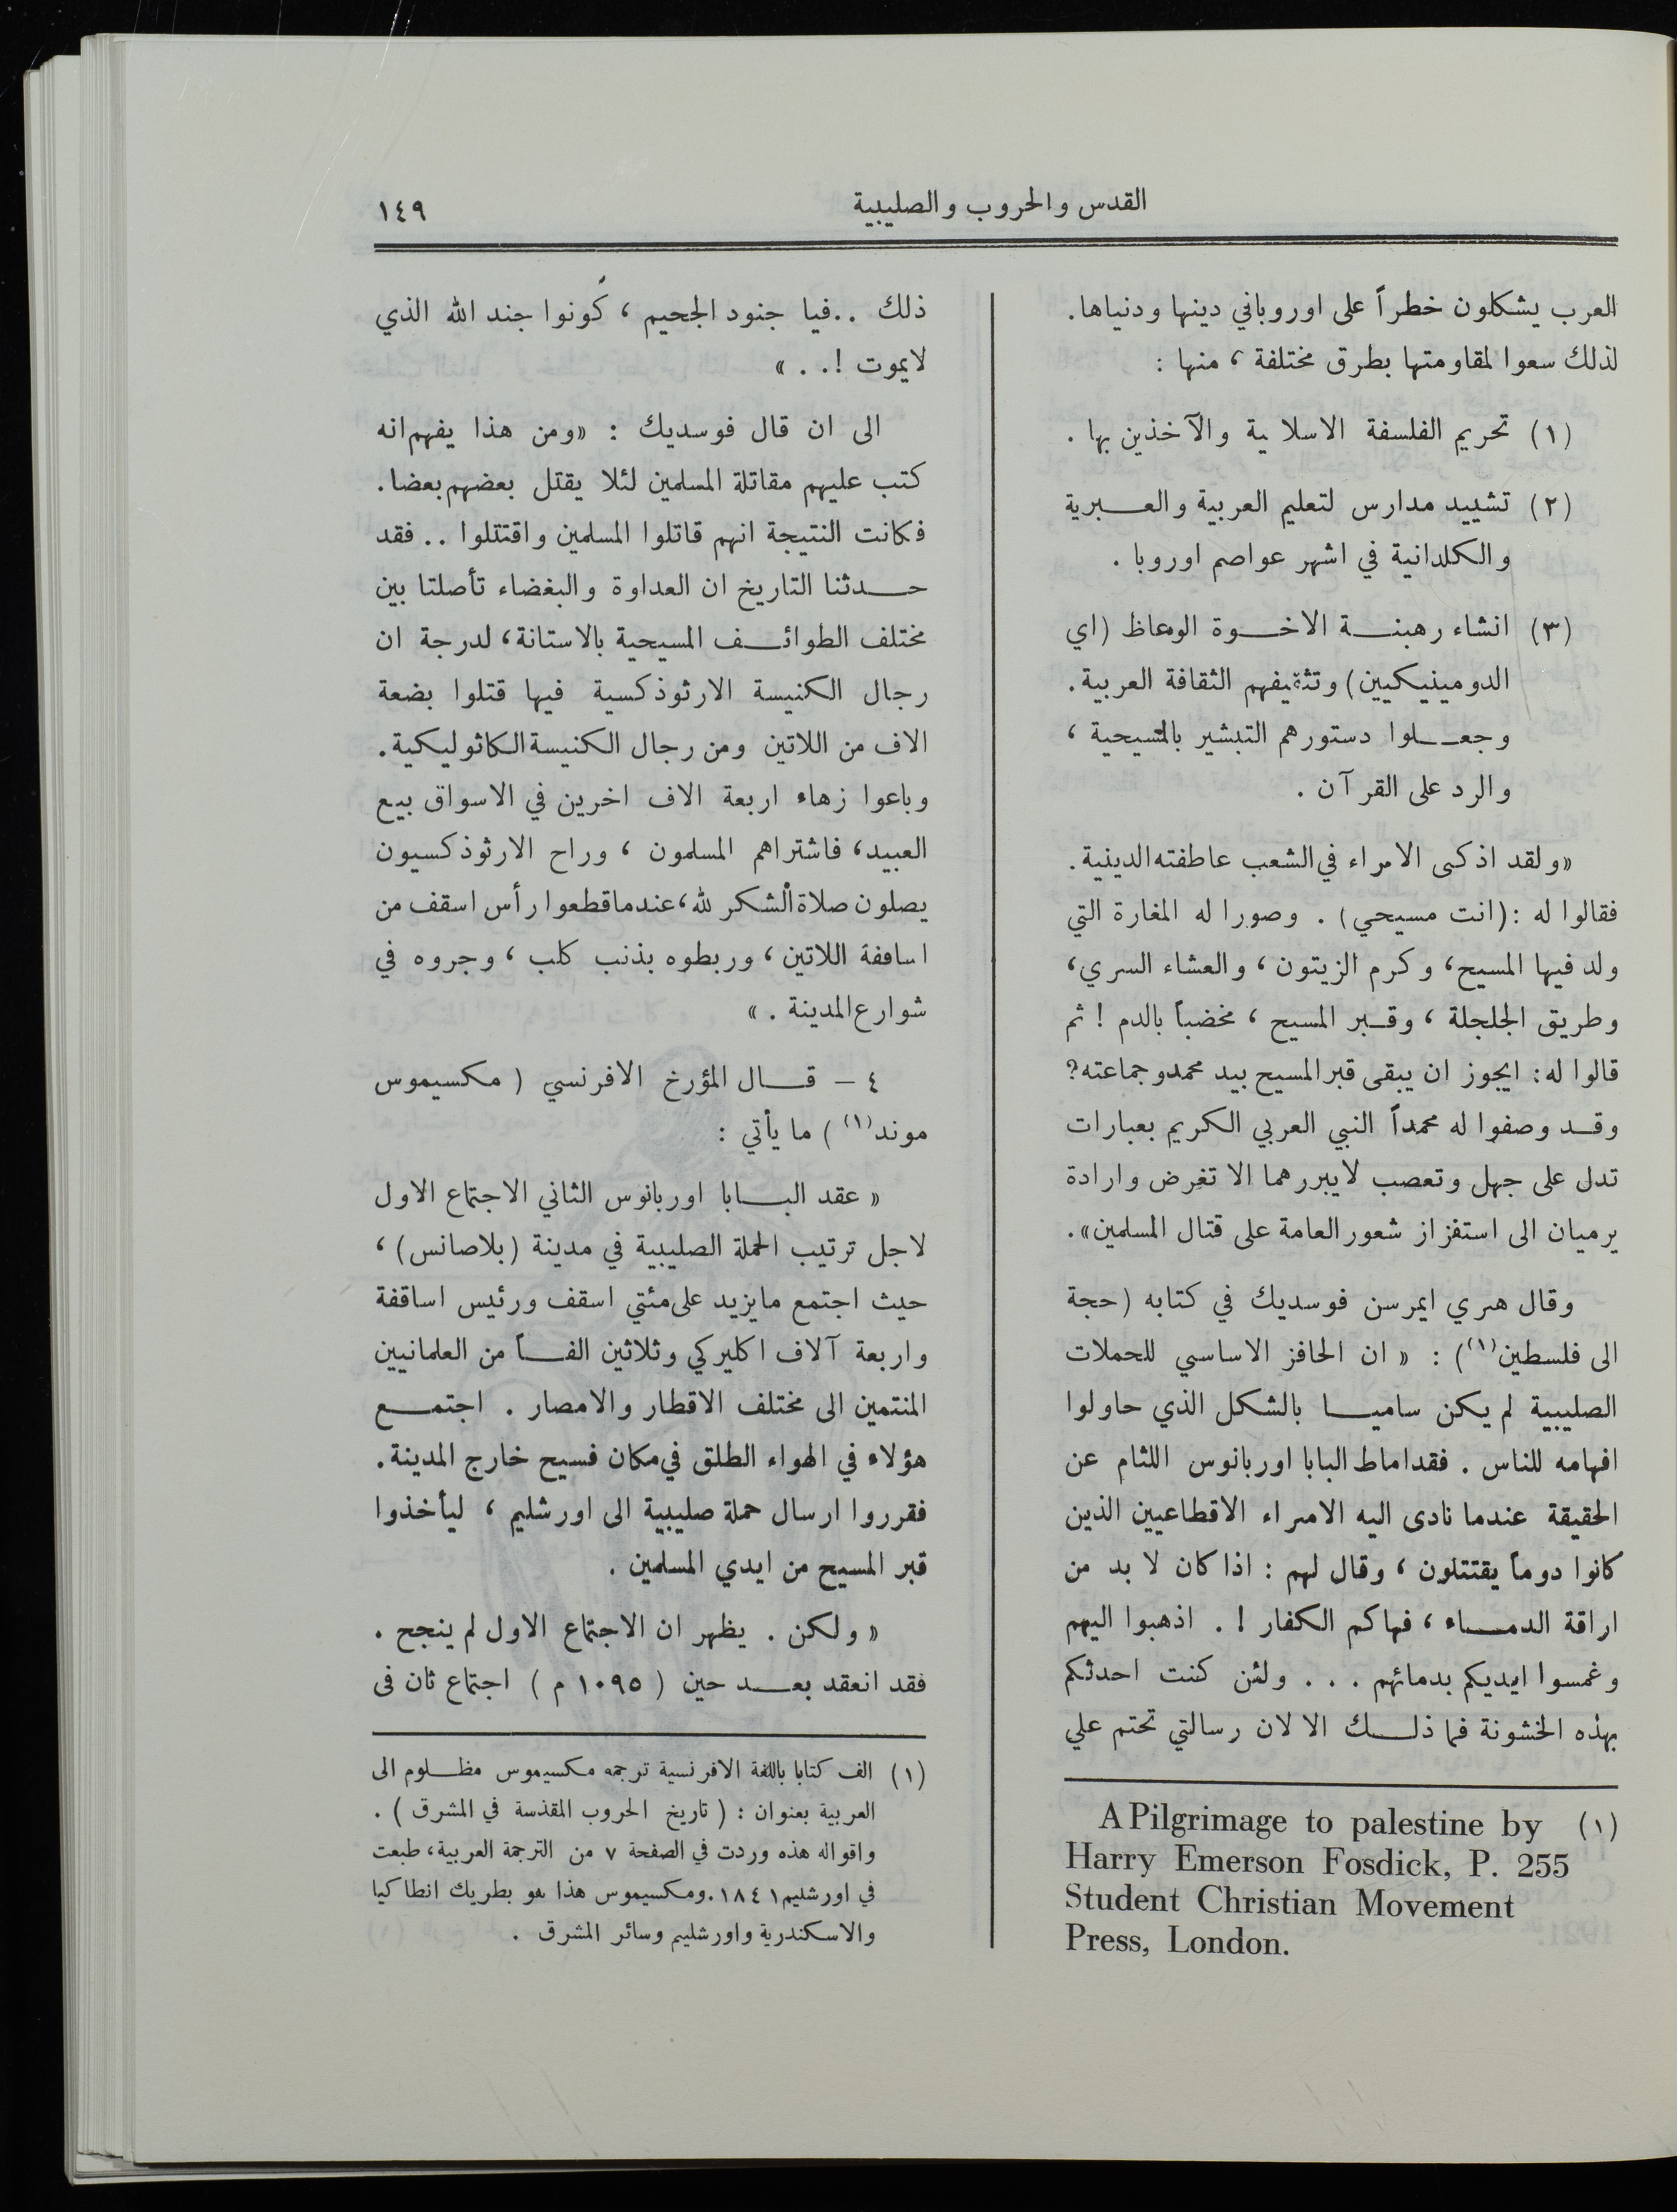 القدس والحروب والصليبية
١٤٩
العرب يشكلون خطراً على اوروباني دينها ودنياها.
لذلك سعوا لمقاومتها بطرق مختلفة ، منها :
(١) تحريم الفلسفة الاسلا ية والآخذين بها .
(٢) تشييد مدارس لتعليم العربية والعبرية
والكلدانية في اشهر عواصم اوروبا .
(٣) انشاء رهبنة الاخوة الوعاظ (اي
الدومينيكيين) وتثقيفهم الثقافة العربية.
وجعلوا دستورهم التبشير بالمسيحية ،
والرد على القرآن .
«ولقد اذكى الامراء في الشعب عاطفته الدينية.
فقالوا له : (انت مسيحي) . وصورا له المغارة التي
ولد فيها المسيح، وكرم الزيتون ، والعشاء السري،
وطريق الجلجلة ، وقبر المسيح ، مخضباً بالدم ! ثم
قالوا له: ايجوز ان يبقى قبر المسيح بيد محمد وجماعته؟
وقد وصفوا له محمداً النبي العربي الكريم بعبارات
تدل على جهل وتعصب لايبررهما الا تغرض وارادة
يرميان الى استفزاز شعور العامة على قتال المسلمين».
وقال هري ايمرسن فوسديك في كتابه (حجة
الى فلسطين(١)) : « ان الحافز الاساسي للحملات
الصليبية لم يكن ساميا بالشكل الذي حاولوا
افهامه للناس . فقد اماط البابا اوربانوس اللثام عن
الحقيقة عندما نادى اليه الامراء الاقطاعيين الذين
كانوا دوماً يقتتلون ، وقال لهم : اذا كان لا بد من
اراقة الدماء ، فهاكم الكفار !. اذهبوا اليهم
وغمسوا ايديكم بدمائهم . . . ولئن كنت احدثكم
بهذه الخشونة فما ذلك الا لان رسالتي تحتم علي
(١) A Pilgrimage to palestine by
Harry Emerson Fosdick, P. 255
Student Christian Movement
Press, London.
ذلك ..فيا جنود الجحيم ، كونوا جند الله الذي
لايموت !. . »
الى ان قال فوسديك : «ومن هذا يفهم انه
كتب عليهم مقاتلة المسلمين لئلا يقتل بعضهم بعضا.
فكانت النتيجة انهم قاتلوا المسلمين واقتتلوا .. فقد
حدثنا التاريخ ان العداوة والبغضاء تأصلتا بين
مختلف الطوائف المسيحية بالاستانة، لدرجة ان
رجال الكنيسة الارثوذكسية فيها قتلوا بضعة
الاف من اللاتين ومن رجال الكنيسة الكاثوليكية.
وباعوا زهاء اربعة الاف اخرين في الاسواق بيع
العبيد، فاشتراهم المسلمون ، وراح الارثوذكسيون
يصلون صلاة الشكر لله، عندما قطعوا رأس اسقف من
اساففة اللاتين ، وربطوه بذنب كلب ، وجروه في
شوارع المدينة . »
٤ – قال المؤرخ الافرنسي ( مكسيموس
موند(١) ) ما يأتي :
« عقد البابا اوربانوس الثاني الاجتماع الاول
لاجل ترتيب الحملة الصليبية في مدينة (بلاصانس) ،
حيث اجتمع مايزيد على مئتي اسقف ورئيس اساقفة
واربعة آلاف اكليركي وثلاثين الفاً من العلمانيين
المنتمين الى مختلف الاقطار والامصار . اجتمع
هؤلاء في الهواء الطلق في مكان فسيح خارج المدينة.
فقرروا ارسال حملة صليبية الى اورشليم ، ليأخذوا
قبر المسيح من ايدي المسلمين .
« ولكن . يظهر ان الاجتماع الاول لم ينجح .
فقد انعقد بعد حين ( ١٠٩٥ م ) اجتماع ثان في
(١) الف كتابا باللغة الافرنسية ترجمه مكسيموس مظلوم الى
العربية بعنوان : ( تاريخ الحروب المقدسة في المشرق ) .
واقواله هذه وردت في الصفحة ٧ من الترجمة العربية، طبعت
في اورشليم ١٨٤١. ومكسيموس هذا هو بطريك انطاكيا
والاسكندرية واورشليم وسائر المشرق .